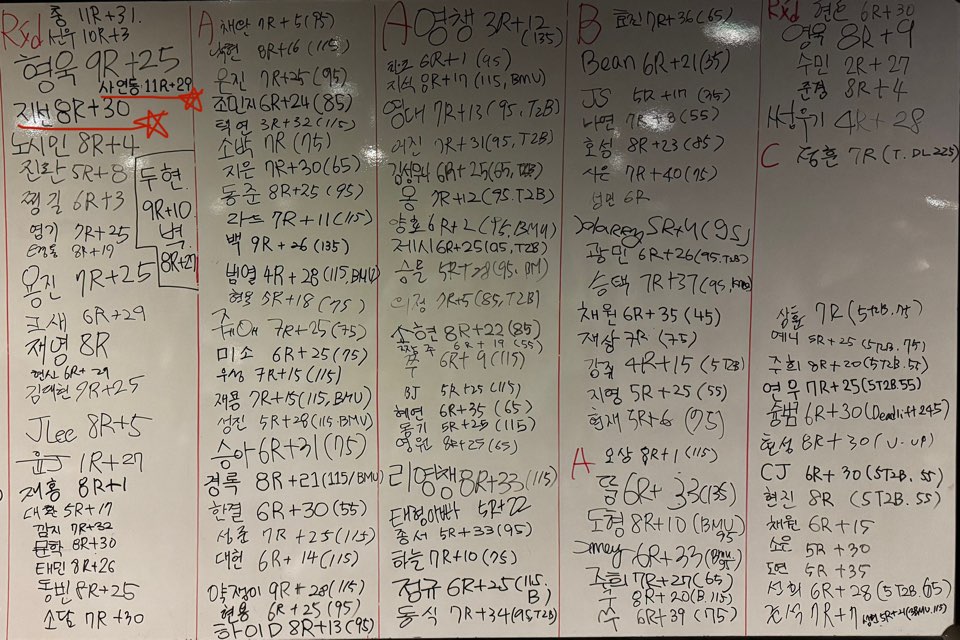 Rxd
종 11R+31.
선우 10R+3
형욱 9R+25
사연동 11R+29
지선 8R+30
노시인 8R+4
진환 5R+8
쩡길 6R+3
영기 7R+25
8R+19
용진 7R+25
크새 6R+29
재영 8R
현식 6R+29
김대현 9R+25
JLee 8R+5
윤J 1R+27
재홍 8R+1
대환 5R+17
깜지 7R+32
문학 8R+30
태민 8R+26
동빈 8R+25
소담 7R+30
두현.
9R+10
벽.
8R+27
A
채안 7R+5(95)
낙현 8R+16 (115)
은진 7R+25(95)
조민지 6R+24(85)
탁연 3R+32(115)
소박 7R(75)
지은 7R+30(65)
동준 8R+25 (95)
라스 7R+11(115)
백 9R+26 (135)
범열 4R+28(115,BMU)
현용 5R+18 (75)
7R+25(75)
미소 6R+25(75)
우성 7R+15(115)
재용 7R+15(115,BMU)
성진 5R+28(115,BMU)
승아 6R+31(75)
경록 8R+21(115/BMU)
한결 6R+30(55)
성준 7R+25(115)
대현 6R+14(115)
야쟁이 9R+28(115)
현용 6R+25(95)
하이D 8R+13(95)
A
영챙 3R+12(135)
6R+1 (95)
지식 8R+17 (115,BMU)
영대 7R+13(95.T2B)
어진 7R+31(95,T2B)
김성우 6R+25(65,T2B)
웅 7R+2(95.T2B)
양호 6R+2(95,BMU)
제시 6R+25(95,T2B)
승물 5R+28(95.BM)
의정 7R+5(85,T2B)
소현 8R+22(85)
6R+19 (55)
쭈 6R+9(115)
BJ 5R+25(115)
혜연 6R+35 (65)
봉기 5R+25(115)
영원 8R+25(65)
리영챙 8R+33(115)
태형아빠 5R+22
종서 5R+33(95)
하늘 7R+10(75)
정규 6R+25(115.B)
동식 7R+34(95,T2B)
B
효진 7R+36(65)
Bean 6R+21(35)
JS 5R+17 (35)
나연 7R+8(55)
호성 8R+23(85)
사은 7R+40(75)
성민 6R
Harry 5R+4(95)
광민 6R+26(95,T2B)
승택 7R+37(95,BMU)
채원 6R+35 (45)
재상 7R (75)
강쥐 4R+15(5T2B)
지영 5R+25(55)
현재 5R+6 (75)
A
오상 8R+1(115)
뜸 6R+33(135)
도형 8R+10(BMU,95)
Jmey 6R+33(BMU,95)
준희 7R+27(65)
8R+20(B.115)
수 6R+39 (75)
Rxd
경은 6R+30
영욱 8R+9
수민 2R+27
준경 8R+4
서섭우기 4R+28
C
정훈 7R(T.DL225)
상훈 7R(5T2B.75)
예니 5R+25(5T2B.75)
주희 8R+20(5T2B.55)
연우 7R+25(5T2B.55)
숭범 6R+30(Deadlift245)
효성 8R+30(V.UP)
CJ 6R+30(5T2B.55)
현진 8R (5T2B.55)
채원 6R+15
소은 5R+30
도연 5R+35
선희 6R+28(5T2B/75)
진식 7R+7
5R+21(BMU,115)